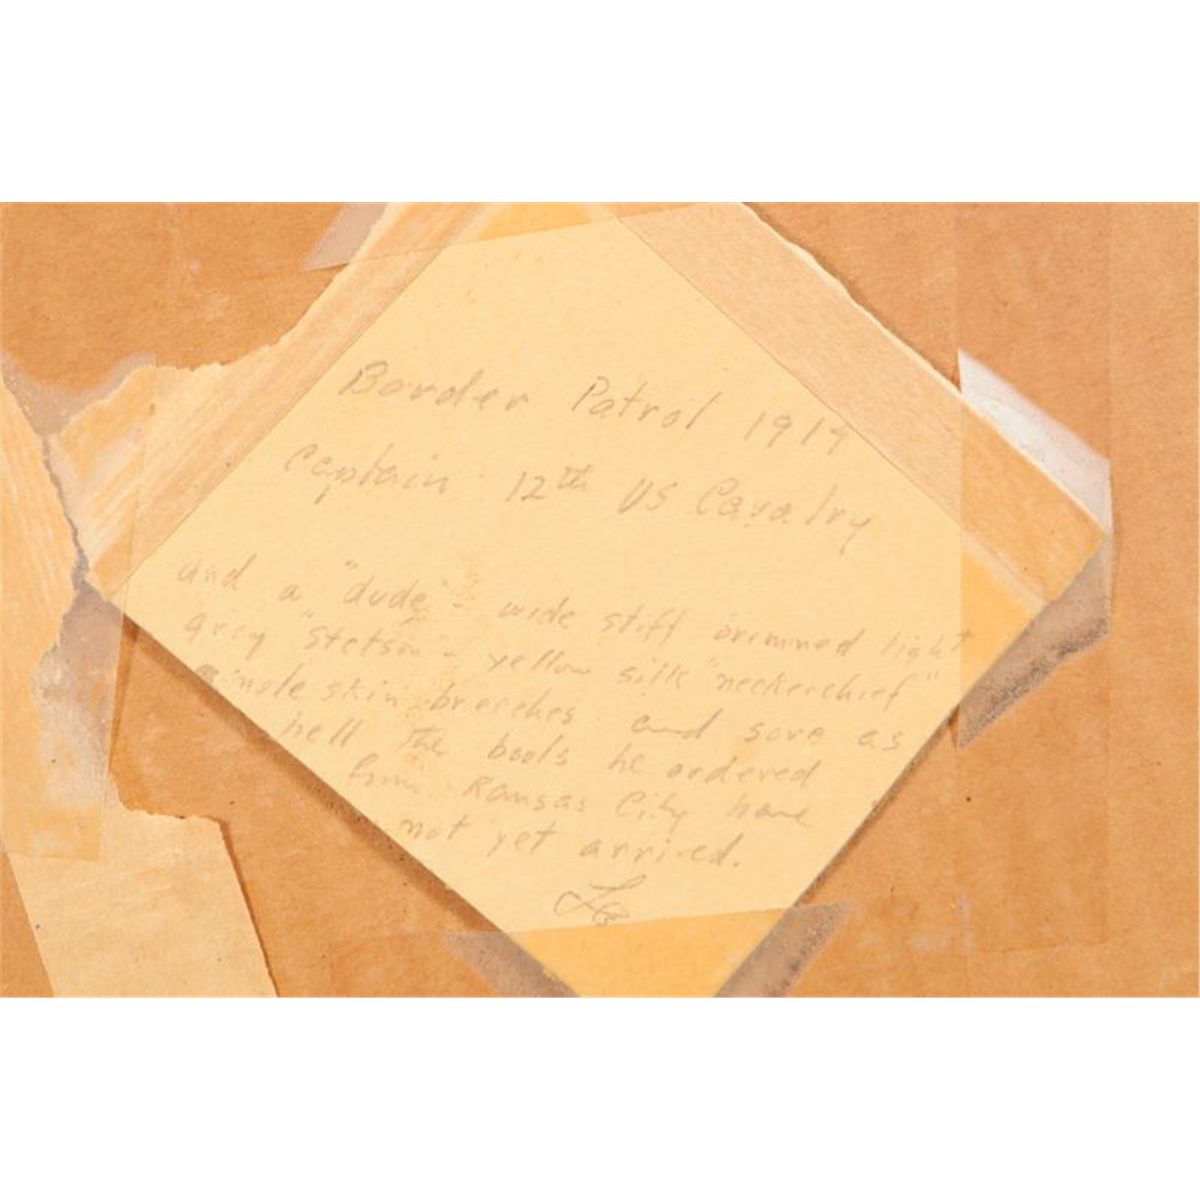 Border Patrol 1914
Captain 12th US Cavalry
and a "dude" - wide stiff brimmed light
grey "Stetson - yellow silk "neckerchief"
skin breeches and sore as
hell the boots he ordered
from Kansas City have
not yet arrived.